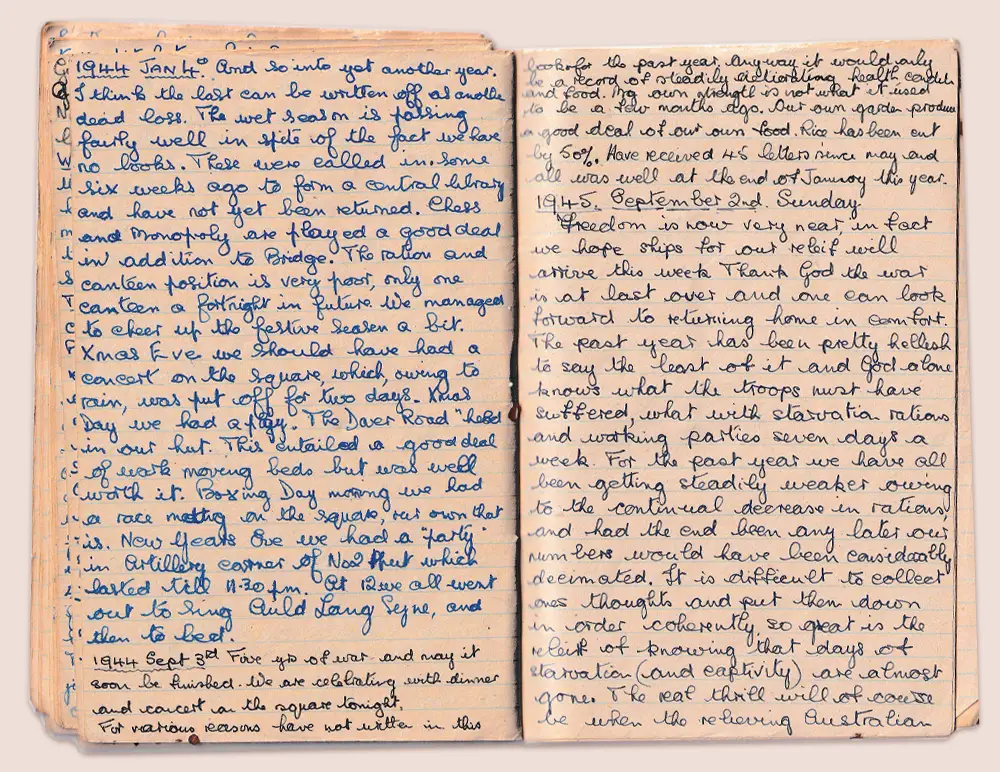 1944 JAN 4th. And so into yet another year.
I think the last can be written off as anothe
dead loss. The wet season is passing
fairly well in spite of the fact we have
no books. These were called in some
six weeks ago to form a central library
and have not yet been returned. Chess
and Monopoly are played a good deal
in addition to Bridge. The ration and
canteen position is very poor, only one
canteen a fortnight in future. We managed
to cheer up the festive season a bit.
Xmas Eve we should have had a
concert on the square, which, owing to
rain, was put off for two days. Xmas
Day we had a play. "The Dover Road" held
in our hut. This entailed a good deal
of work moving beds but was well
worth it. Boxing Day morning we had
a race meeting on the square, our own that
is. New Years Eve we had a "party"
in Artillery corner of No2 Hut which
lasted till 11.30 pm. At 12 we all went
out to sing Auld Lang Syne, and
then to bed.
1944 Sept 3rd Five yrs of war and may it
soon be finished. We are celebrating with dinner
and concert on the square tonight.
For various reasons have not written in this
book for the past year. Anyway it would only
be a record of steadily deteriorating health, conditi
and food. My own strength is not what it used
to be a few months ago. Our own garden produces
a good deal of our own food. Rice has been cut
by 50%. Have received 45 letters since may and
all was well at the end of January this year.
1945. September 2nd. Sunday
Freedom is now very near, in fact
we hope ships for our releif will
arrive this week Thank God the war
is at last over and one can look
forward to returning home in comfort.
The past year has been pretty hellish
to say the least of it and God alone
knows what the troops must have
suffered, what with starvation rations
and working parties seven days a
week. For the past year we have all
been getting steadily weaker owing
to the continual decrease in rations,
and had the end been any later our
numbers would have been considerably
decimated. It is difficult to collect
ones thoughts and put them down
in order coherently, so great is the
releif of knowing that days of
starvation (and captivity) are almost
gone. The real thrill will of course
be when the relieving Australian